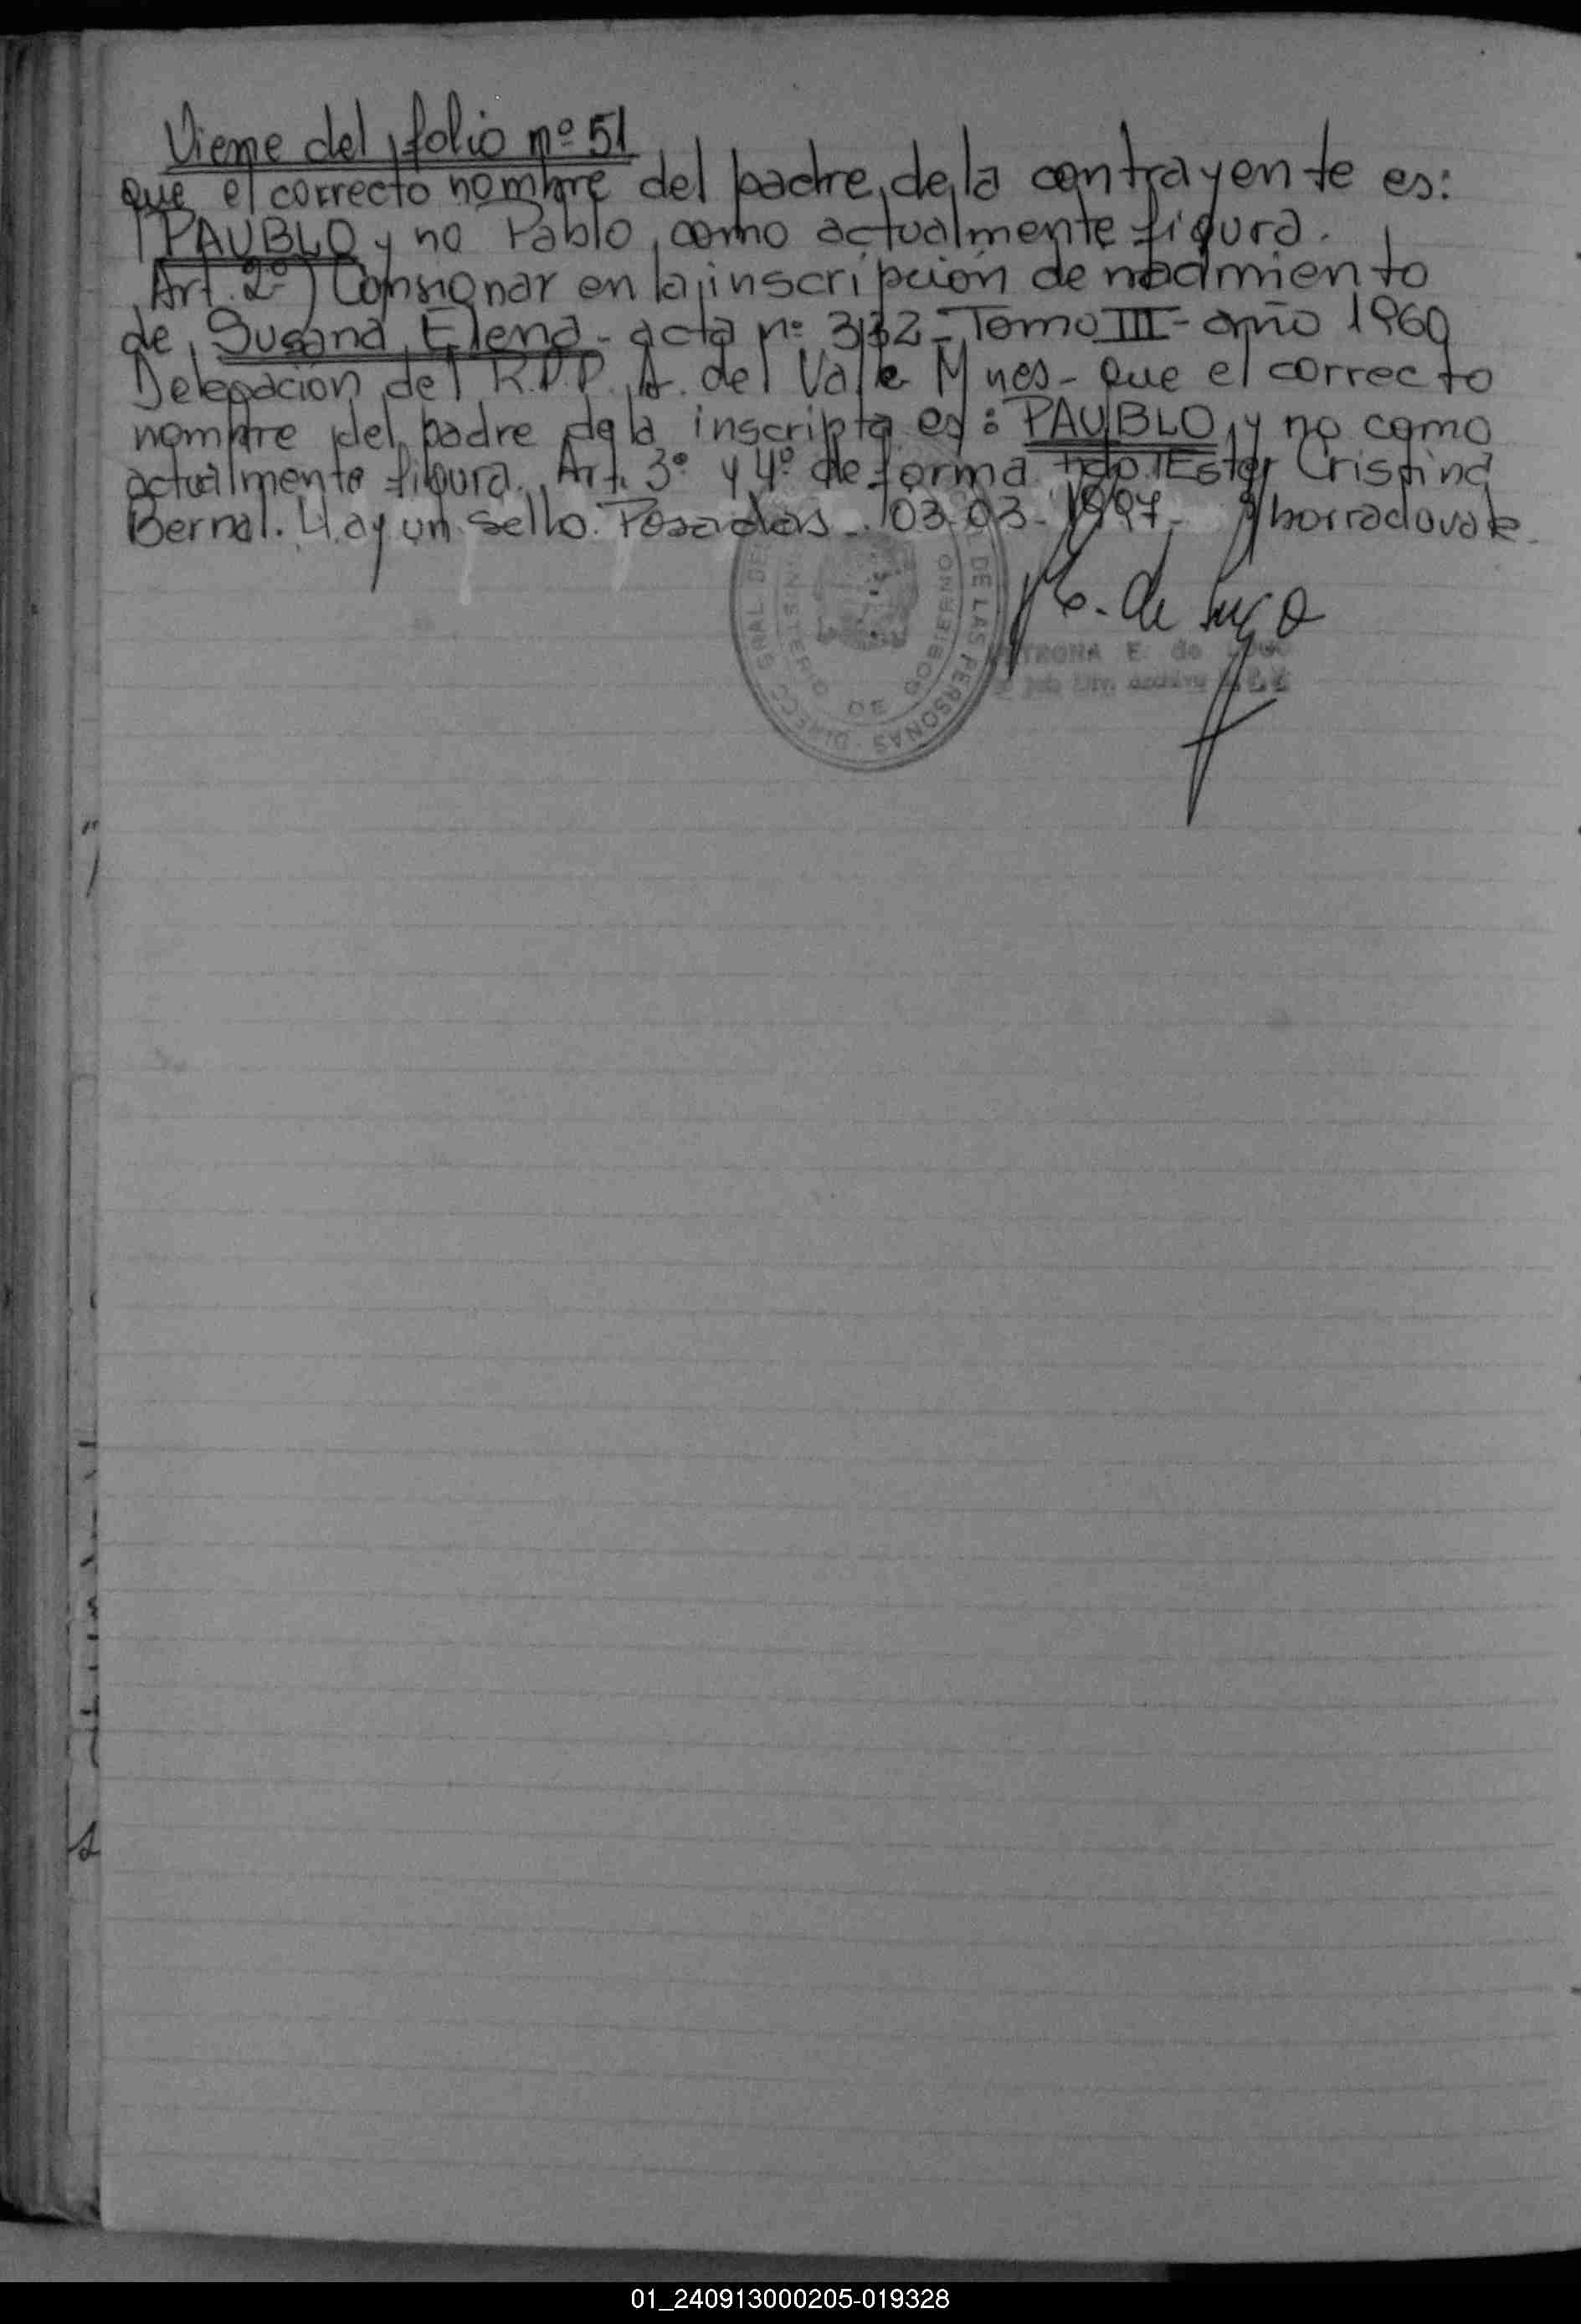 Viene del folio nº 51
que el correcto nombre del padre de la contrayente es:
PAUBLO y no Pablo como actualmente figura.
Art. 2º) Consignar en la inscripción de nacimiento
de Susana Elena - acta nº 332 - Tomo III - año 1960
Delegación del R.P.P. A. del Valle Mnes - que el correcto
nombre del padre de la inscripta es: PAUBLO y no como
actualmente figura. Art. 3º y 4º de forma fdo. Ester Cristina
Bernal. Hay un sello. Posadas - 03-03-1997 - borrado vale.
DE LAS PERSONAS
MINISTERIO DE GOBIERNO
de Lugo
E. de
01_240913000205-019328